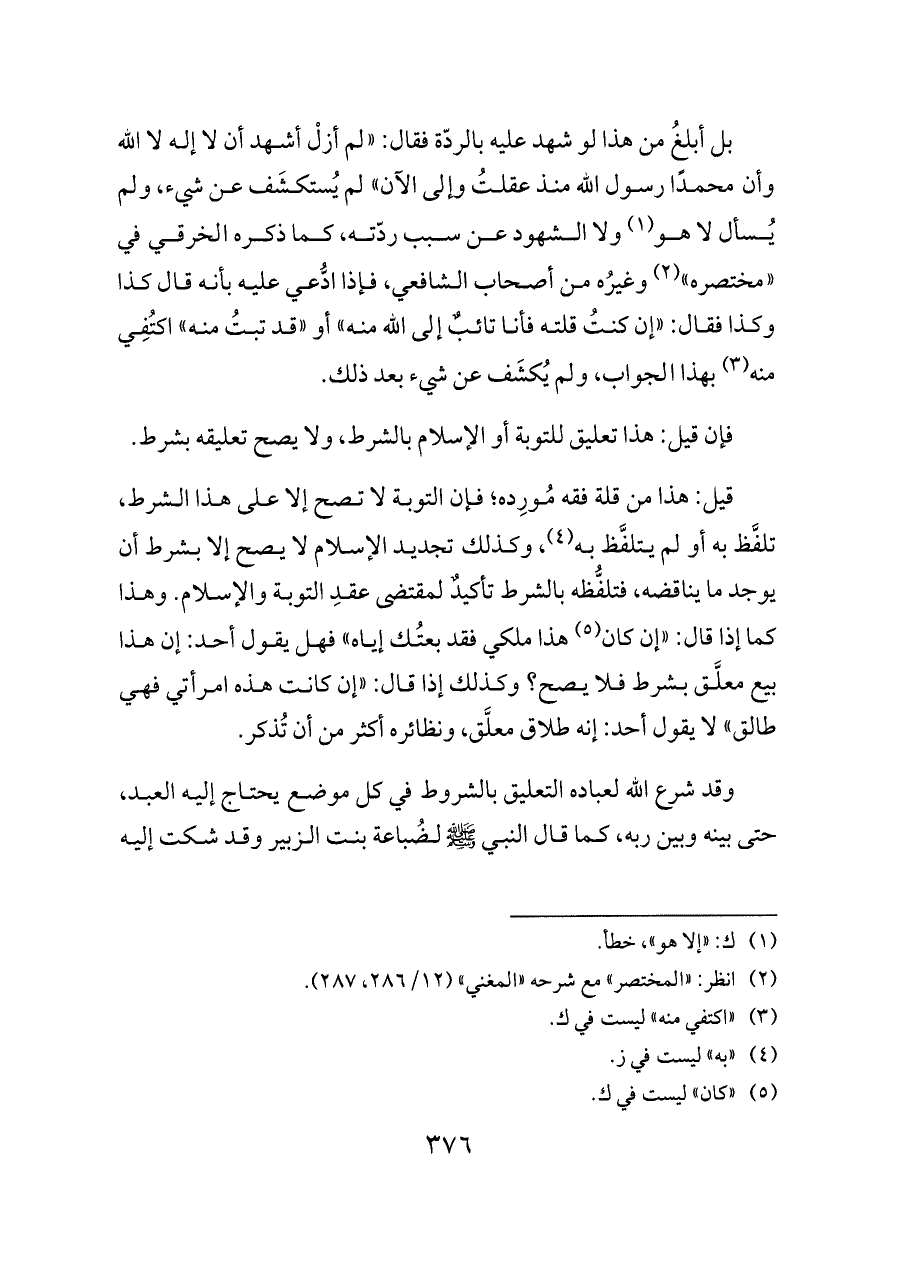 بل أبلغُ من هذا لو شهد عليه بالردّة فقال: «لم أزلْ أشهد أن لا إله لا الله
وأن محمدًا رسول الله منذ عقلتُ وإلى الآن» لم يُستكشَف عن شيء، ولم
يُسأل لا هو(١) ولا الشهود عن سبب ردّته، كما ذكره الخرقي في
«مختصره»(٢) وغيرُه من أصحاب الشافعي، فإذا ادُّعي عليه بأنه قال كذا
وكذا فقال: «إن كنتُ قلته فأنا تائبٌ إلى الله منه» أو «قد تبتُ منه» اكتُفِي
منه(٣) بهذا الجواب، ولم يُكشَف عن شيء بعد ذلك.
فإن قيل: هذا تعليق للتوبة أو الإسلام بالشرط، ولا يصح تعليقه بشرط.
قيل: هذا من قلة فقه مُورِده؛ فإن التوبة لا تصح إلا على هذا الشرط،
تلفَّظ به أو لم يتلفَّظ به(٤)، وكذلك تجديد الإسلام لا يصح إلا بشرط أن
يوجد ما يناقضه، فتلفُّظه بالشرط تأكيدٌ لمقتضى عقدِ التوبة والإسلام. وهذا
كما إذا قال: «إن كان(٥) هذا ملكي فقد بعتُك إياه» فهل يقول أحد: إن هذا
بيع معلَّق بشرط فلا يصح؟ وكذلك إذا قال: «إن كانت هذه امرأتي فهي
طالق» لا يقول أحد: إنه طلاق معلَّق، ونظائره أكثر من أن تُذكر.
وقد شرع الله لعباده التعليق بالشروط في كل موضع يحتاج إليه العبد،
حتى بينه وبين ربه، كما قال النبي ﷺ لضُباعة بنت الزبير وقد شكت إليه
(١) ك: «إلا هو»، خطأ.
(٢) انظر: «المختصر» مع شرحه «المغني» (١٢/ ٢٨٦، ٢٨٧).
(٣) «اكتفي منه» ليست في ك.
(٤) «به» ليست في ز.
(٥) «كان» ليست في ك.
٣٧٦